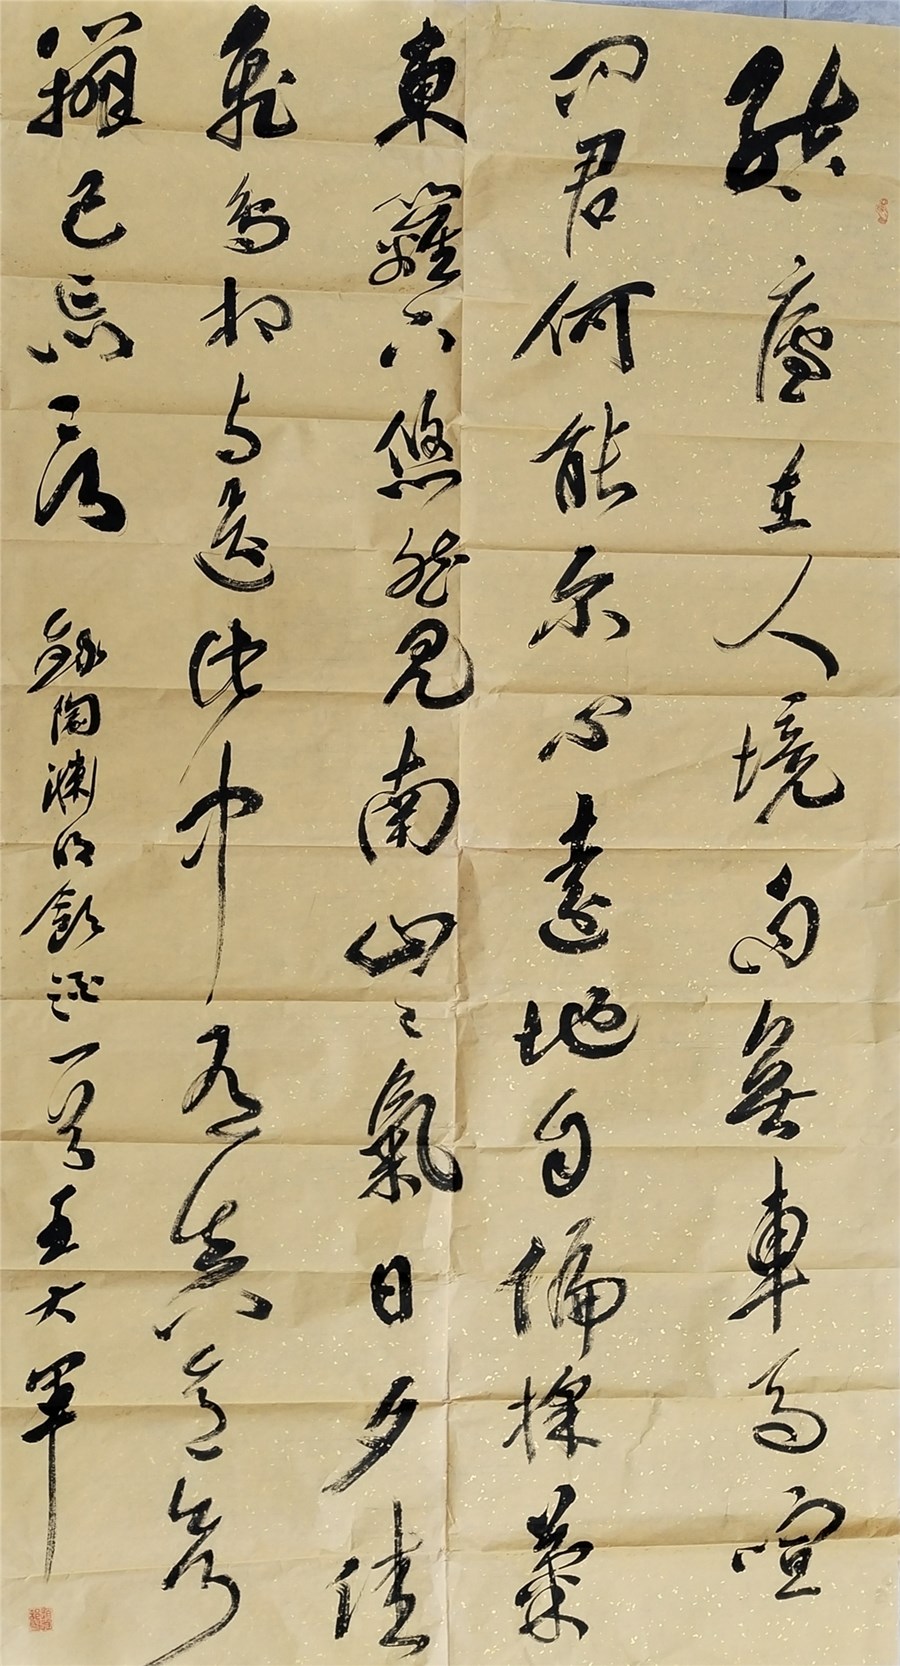 結廬在人境而無車馬喧
问君何能尔心遠地自偏採菊
東籬下悠然見南山々氣日夕佳
飛鳥相与還此中有真意欲
辨已忘言 錄陶渊明飲酒一首 王大軍